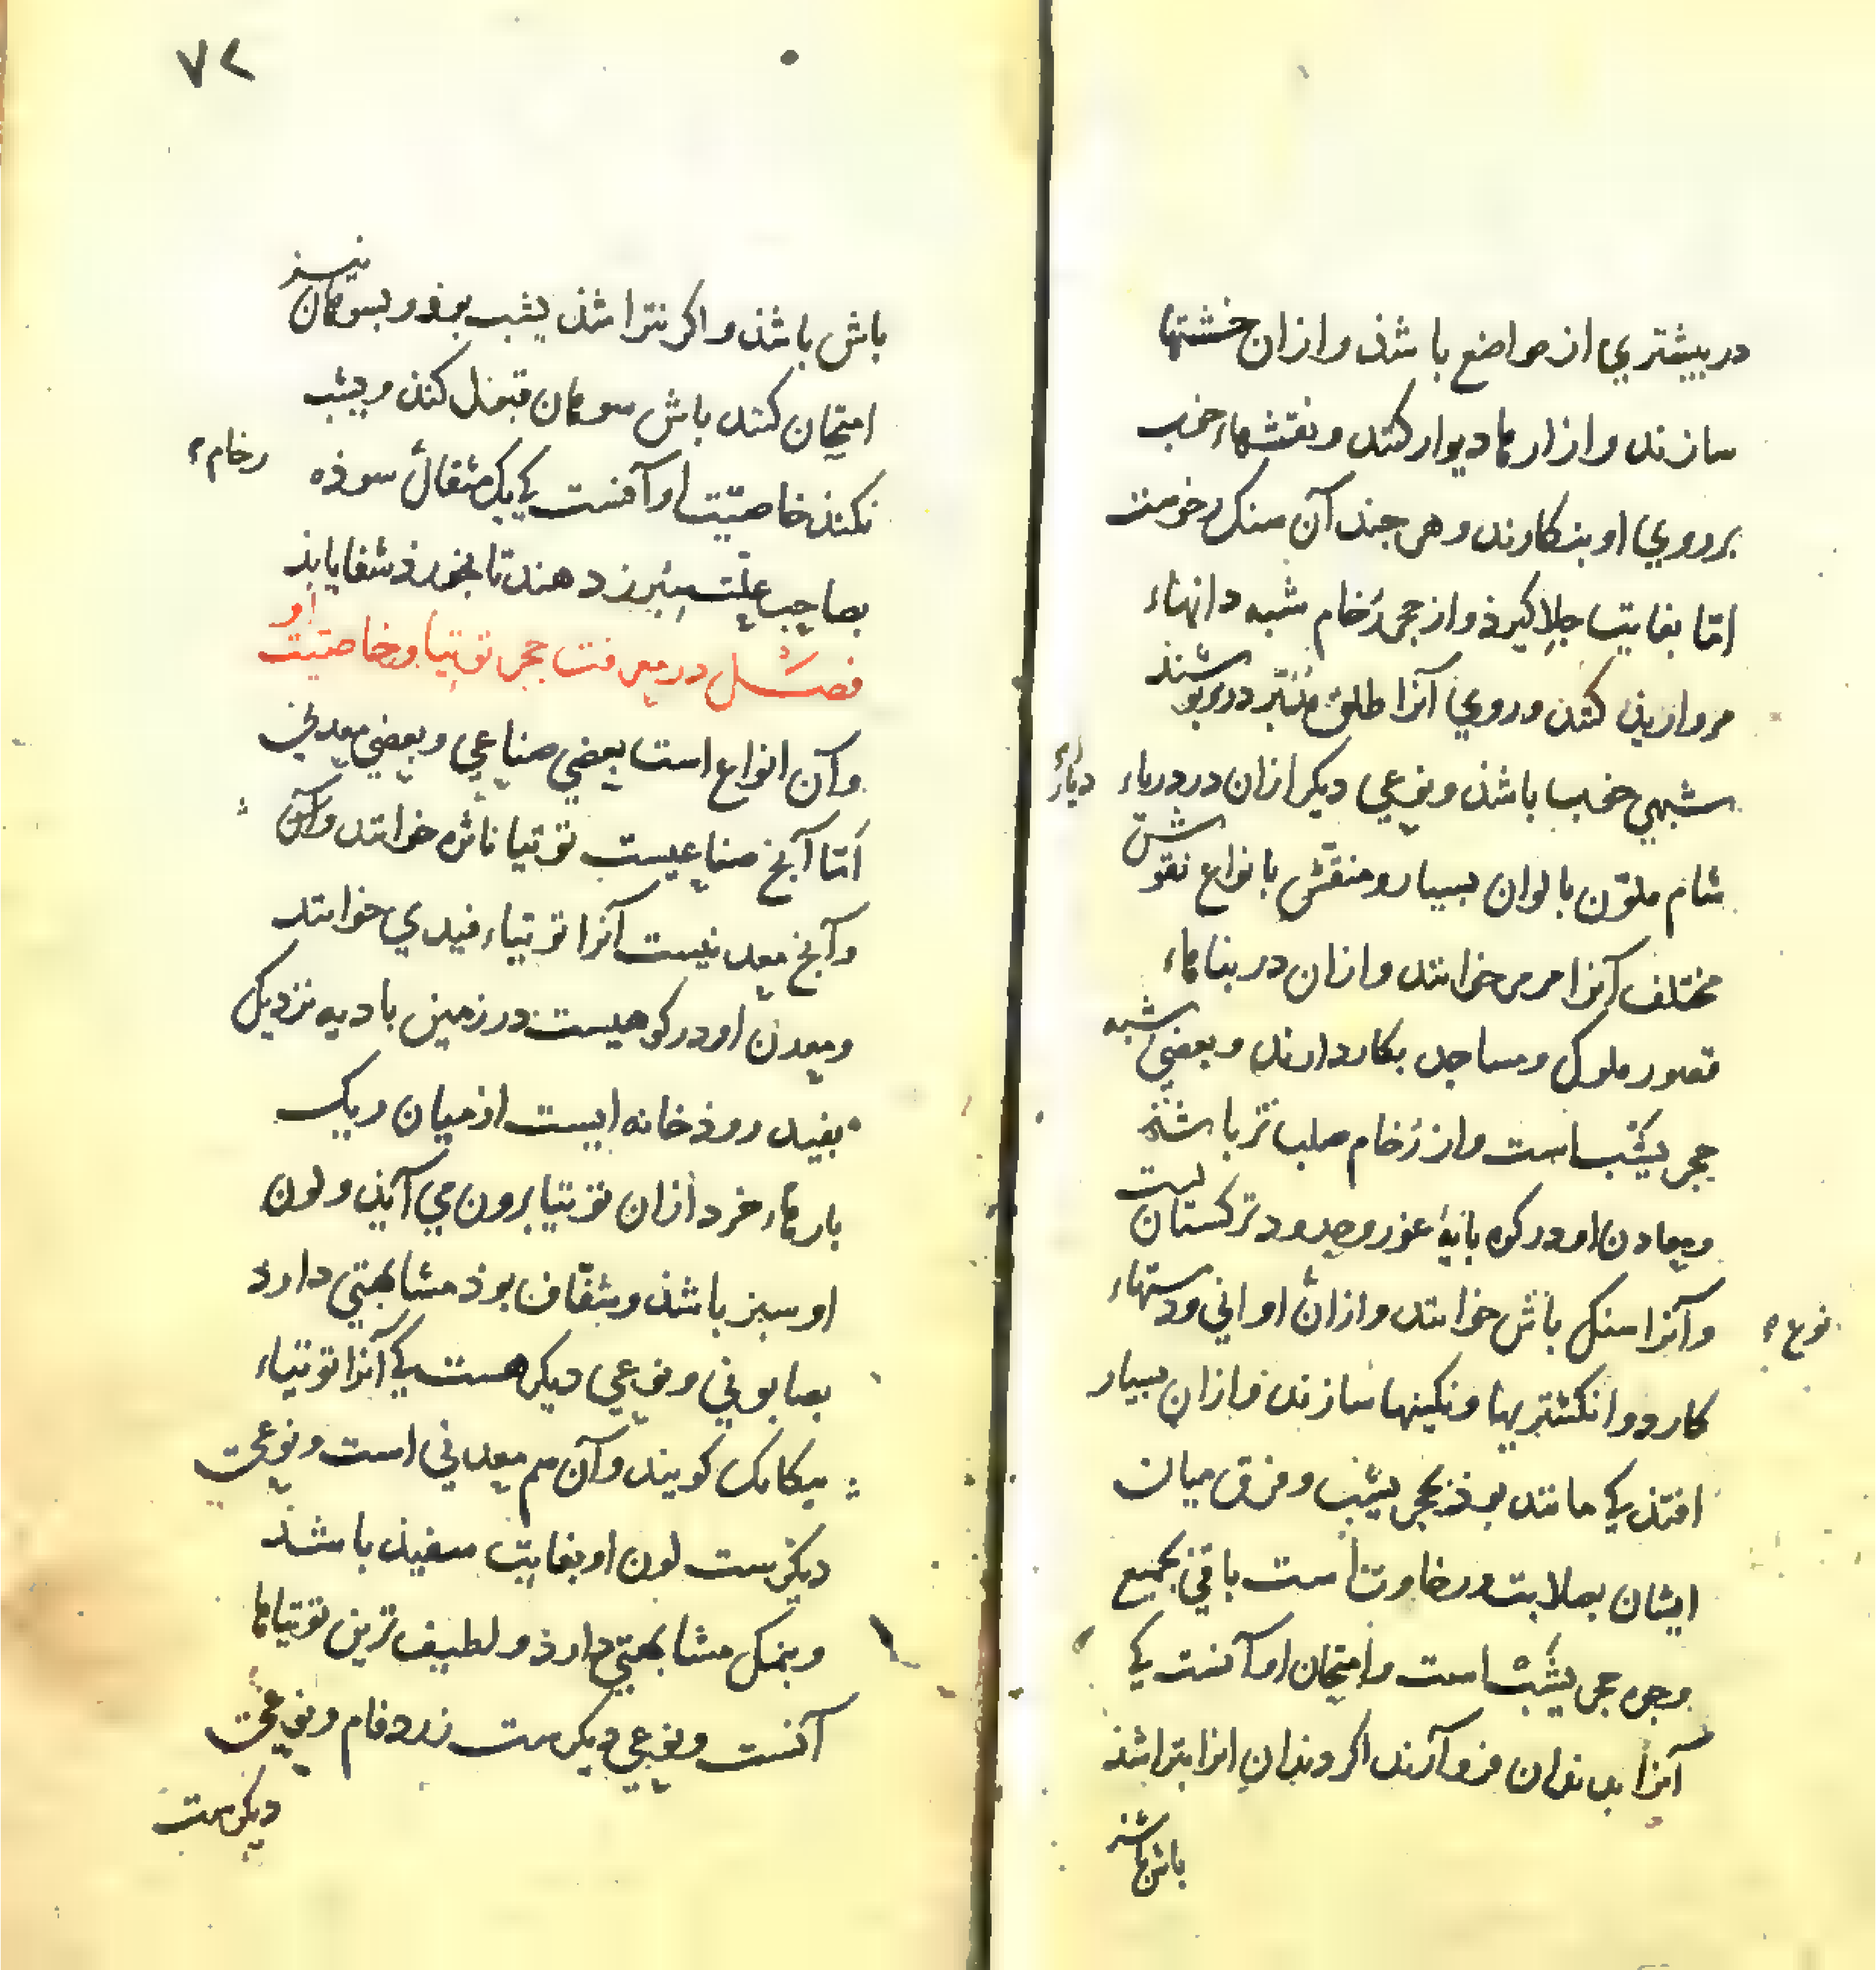 در بیشتری از مواضع باشذ و ازان خشتها
سازند و ازارها دیوار کنند و نقشهاء خوب
بر روی او بنکارند و هر جند آن سنک رخوست
امّا بغایت جلا کیرذ و از حجر رُخام شبه دانهاء
مروارید کنند و روی آنرا طلق مُدَبّر در بوشند
شبهی خوب باشذ و نوعی دیکر ازان در دریاء
دیار؟
شام ملوّن بالوان بسیار و منقّش بانواع نقوش
مختلف آنرا مرمر خوانند و ازان در بناهاء
قصور ملوک و مساجد بکار دارند و بعضی شبه
حجر یشب است و از رُخام صلب تر باشذ
و معادن او در کوه بایهٔ غور و حدود ترکستان است
و آنرا سنک باش خوانند و ازان اوانی و دستهاء
نوع
کارد و انکشتریها و نکینها سازند و ازان بسیار
افتذ کی مانند بوذ بحجر یشب و فرق میان
ایشان بصلابت و رخاوت است باقی بجمیع
وجوه حجر یشب است و امتحان او آنست کی
آنرا بدندان فرو آرند اکر دندان انرا بتراشذ
باش باشذ
۷۲
باش باشذ و اکر نتراشذ یشب بوذ و بسوهان نیز
امتحان کنند باش سوهان قبول کند و یشب
نکند خاصیّت او آنست کی یک مثقال سوذه
رخام
بصاحب علّت سبرز دهند تا بخورذ شفا یابذ
فصل در معرفت حجر توتیا و خاصیّت او
و آن انواع است بعضی صناعی و بعضی معدنی
امّا آنج صناعیست توتیا ناژه خوانند و آن
و آنج معدنیست آنرا توتیاء فیدی خوانند
و معدن او در کوهیست در زمین بادیه نزدیک
بفید روذخانه ایست از میان ریک
بارهاء خرد ازان توتیا برون می آید و لون
او سبز باشذ و شفّاف بوذ مشابهتی دارد
بصابونی و نوعی دیکر هست کی آنرا توتیاء
میکامک کویند و آن هم معدنی است و نوعی
دیکرست لون او بغایت سفید باشذ
و بنمک مشابهتی دارذ و لطیف ترین توتیاها
آنست و نوعی دیکرست زرد فام و نوعی
دیکرست